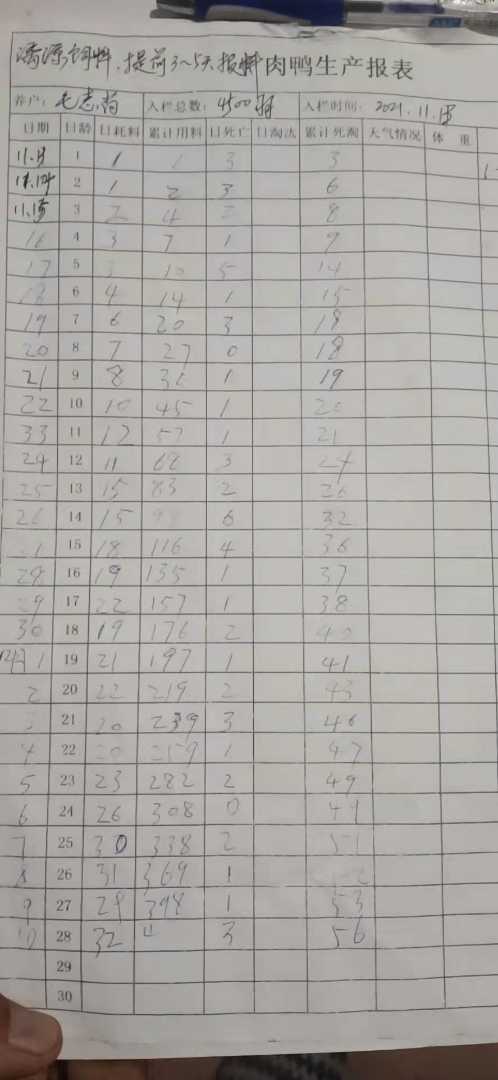 饲料.提前3~5天报料肉鸭生产报表
养户: 入栏总数: 4500 入栏时间: 2021.11.13
日期 日龄 日耗料 累计用料 日死亡 日淘汰 累计死淘 天气情况 体 重
11.13 1 1 1 3 3
11.14 2 1 2 3 6
11.15 3 2 4 2 8
16 4 3 7 1 9
17 5 10 5 14
18 6 4 14 1 15
19 7 6 20 3 18
20 8 7 27 0 18
21 9 8 1 19
22 10 10 45 1 20
33 11 12 57 1 21
24 12 11 68 3 24
25 13 15 83 2 26
26 14 15 98 6 32
15 18 116 4 36
28 16 19 135 1 37
29 17 22 157 1 38
30 18 19 176 2 40
12月1 19 21 197 1 41
2 20 22 219 2 43
3 21 20 239 3 46
4 22 20 259 1 47
5 23 23 282 2 49
6 24 26 308 0 49
7 25 30 338 2 51
8 26 31 369 1
9 27 29 398 1 53
10 28 32 3 56
29
30